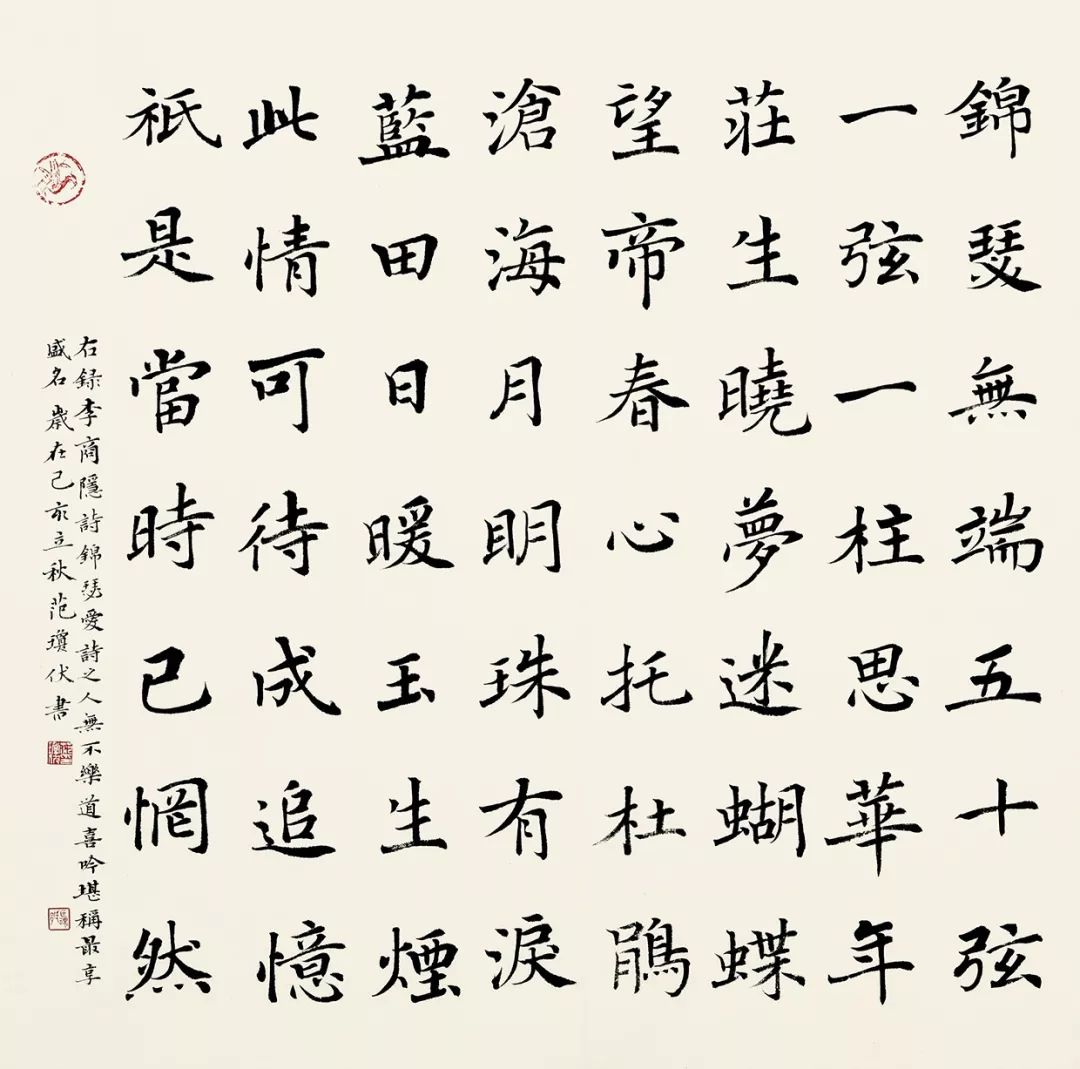 錦瑟無端五十弦
一弦一柱思華年
莊生曉夢迷蝴蝶
望帝春心托杜鵑
滄海月明珠有淚
藍田日暖玉生煙
此情可待成追憶
祇是當時已惘然
右録李商隱詩錦瑟愛詩之人無不樂道喜吟堪稱最享
盛名歲在己亥立秋范瓊伏書